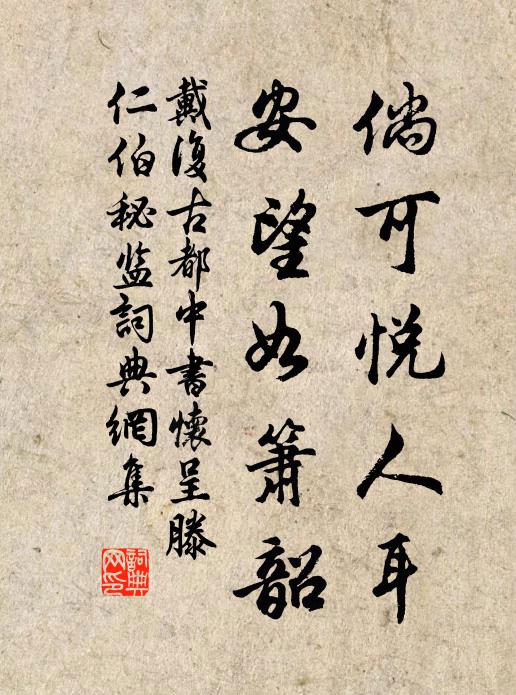 倘可悦人耳
安望如箫韶
戴復古都中書懷呈滕
仁伯秘监詞典網集
詞典网印